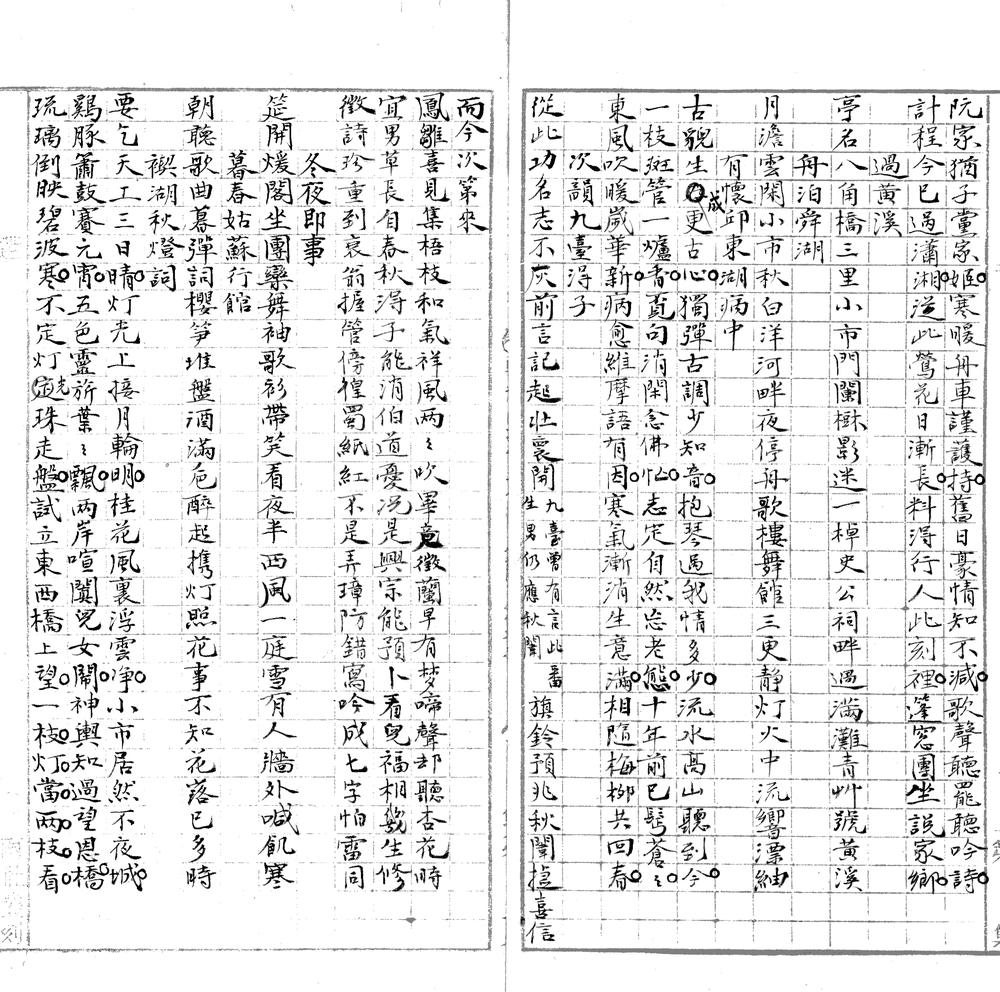 阮家猶子黨家姬寒暖舟車謹護持舊日豪情知不減歌聲聽罷聽吟詩
計程今已過瀟湘從此鶯花日漸長料得行人此刻裡篷窓團坐說家鄉
過黃溪
亭名八角橋三里小市門闌樾影迷一棹史公祠畔過滿灘青艸號黃溪
舟泊舜湖
月澹雲閑小市秋白洋河畔夜停舟歌樓舞館三更靜灯火中流響漂紬
有懷邱東湖病中
古貌生成更古心獨彈古調少知音抱琴過我情多少流水高山聽到今
一枝斑管一爐香覓句消閑念佛忙志定自然忘老態十年前已髩蒼〻
東風吹暖歲華新病愈維摩語有因寒氣漸消生意滿相隨梅柳共回春
次韻九臺得子
從此功名志不灰前言記起壯襄開九臺曾有言此番生男仍應秋闈旗鈴預兆秋闈捷喜信
而今次第來
鳳雛喜見集梧枝和氣祥風兩〻吹畢竟徵蘭早有梦啼聲却聽杏花時
宜男草長自春秋得子能消伯道憂况是興宗能預卜看兒福相幾生修
徵詩珍重到衰翁握管傍徨蜀紙紅不是弄璋防錯寫吟成七字怕雷同
冬夜即事
筵開煖閣坐團欒舞袖歌衫帶笑看夜半西風一庭雪有人牆外喊飢寒
暮春姑蘇行館
朝聽歌曲暮彈詞櫻筍堆盤酒滿巵醉起携灯照花事不知花落已多時
禊湖秋燈詞
要乞天工三日晴灯光上接月輪明桂花風裏浮雲净小市居然不夜城
鷄豚簫鼓賽元宵五色靈旂葉〻飄兩岸喧闐兒女鬧神輿知過望恩橋
琉璃倒映碧波寒不定灯光珠走盤試立東西橋上望一枝灯當兩枝看